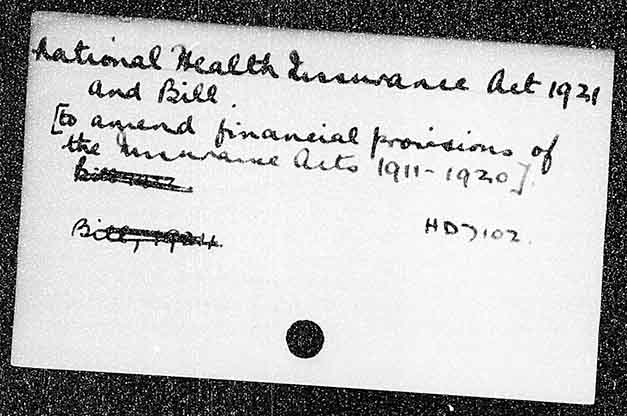 National Health Insurance Act 1921
and Bill.
[to amend financial provisions of
the Insurance Acts 1911-1920].
Bill
Bill, 1924.
HD7102.